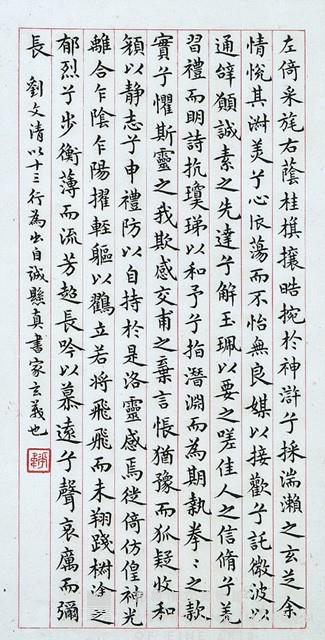 左倚采旄右蔭桂旗攘皓捥於神滸兮採湍瀨之玄芝余
情悅其淑美兮心依蕩而不怡無良媒以接歡兮託微波以
通辭願誠素之先達兮解玉珮以要之嗟佳人之信脩兮羌
習禮而明詩抗瓊珶以和予兮指潛淵而為期執拳〻之款
實兮懼斯靈之我欺感交甫之棄言悵猶豫而狐疑收和
顏以靜志兮申禮防以自持於是洛靈感焉徙倚仿偟神光
離合乍陰乍陽擢輕軀以鶴立若將飛飛而未翔踐椒塗之
郁烈兮步衡薄而流芳超長吟以慕遠兮聲哀厲而彌
長 劉文清以十三行為出自誠懸真書家玄義也